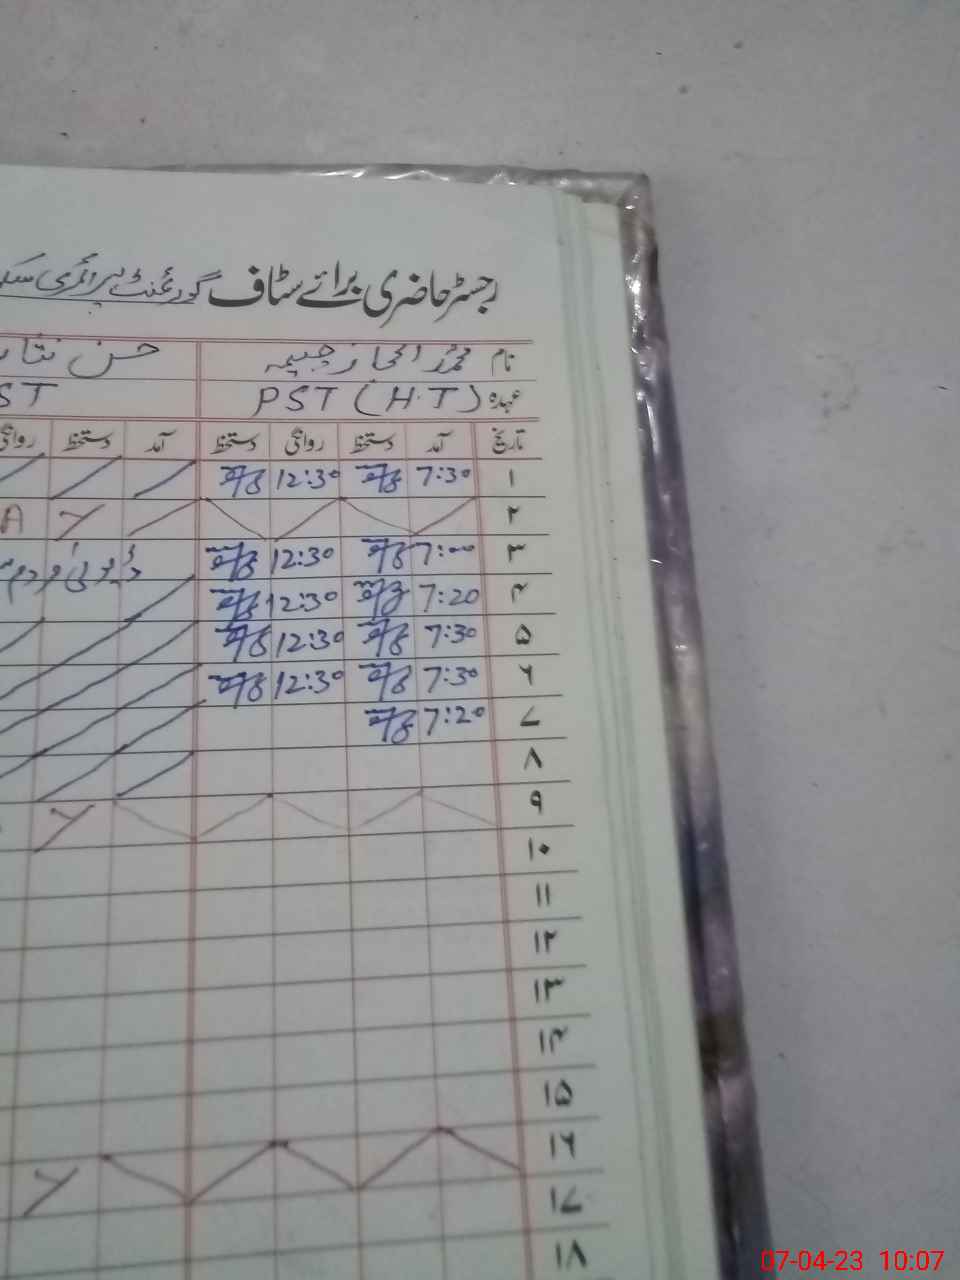 رجسٹر حاضری برائے سٹاف گورنمنٹ پرائمری
نام محمد اعجاز چیمہ حسن
عہدہ PST (H.T) ST
تاریخ آمد دستخط روانگی دستخط آمد دستخط روانگی
۱ 7:30 12:30
۲ A
۳ 7:00 12:30 ڈیوٹی مردم
۴ 7:20 12:30
۵ 7:30 12:30
۶ 7:30 12:30
۷ 7:20
۸
۹
۱۰
۱۱
۱۲
۱۳
۱۴
۱۵
۱۶
۱۷
۱۸
07-04-23 10:07